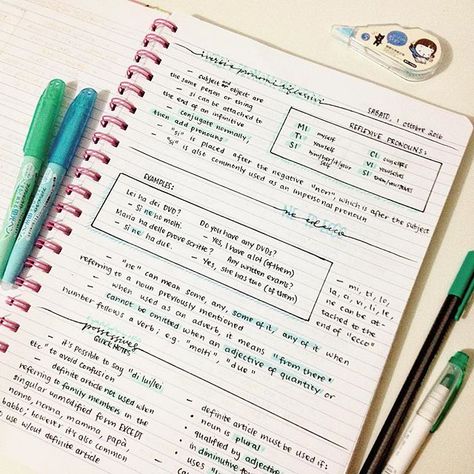 i verbi e pronomi riflessivi
SABATO, 1 ottobre 2016
- subject and object are
the same person or thing
- si can be attached to
the end of an infinitive
- conjugate normally,
then add pronouns
- "si" is placed after the negative "non" which is after the subject
- "si" is also commonly used as an impersonal pronoun
REFLEXIVE PRONOUNS:
MI myself
TI yourself
SI him/her/it/your self
CI ourselves
VI yourselves
SI themselves
EXAMPLES:
Lei ha dei DVD? Do you have any DVDs?
- Sì, ne ho molti. - Yes, I have a lot (of them)
Maria ha delle prove scritte? Any written exams?
- Sì ne ha due. - Yes, she has two (of them)
- "ne" can mean some, any, some of it, any of it when
referring to a noun previously mentioned
- when used as an adverb, it means "from there"
- cannot be omitted when an adjective of quantity or
number follows a verb; e.g. "molti", "due"
- mi, ti, le,
la, ci, vi, le,
ne can be at-
tached to the
end of "ecco"
possessives
QUICK NOTES
- it's possible to say "di lui/lei
etc" to avoid confusion
- definite article not used when
referring to family members in the
singular unmodified form EXCEPT
nonno, nonna, mamma, papà,
babbo; however it's also common
to use w/out definite article
- definite article must be used if:
• noun is plural
• qualified by adjective
• in diminutive form
• uses